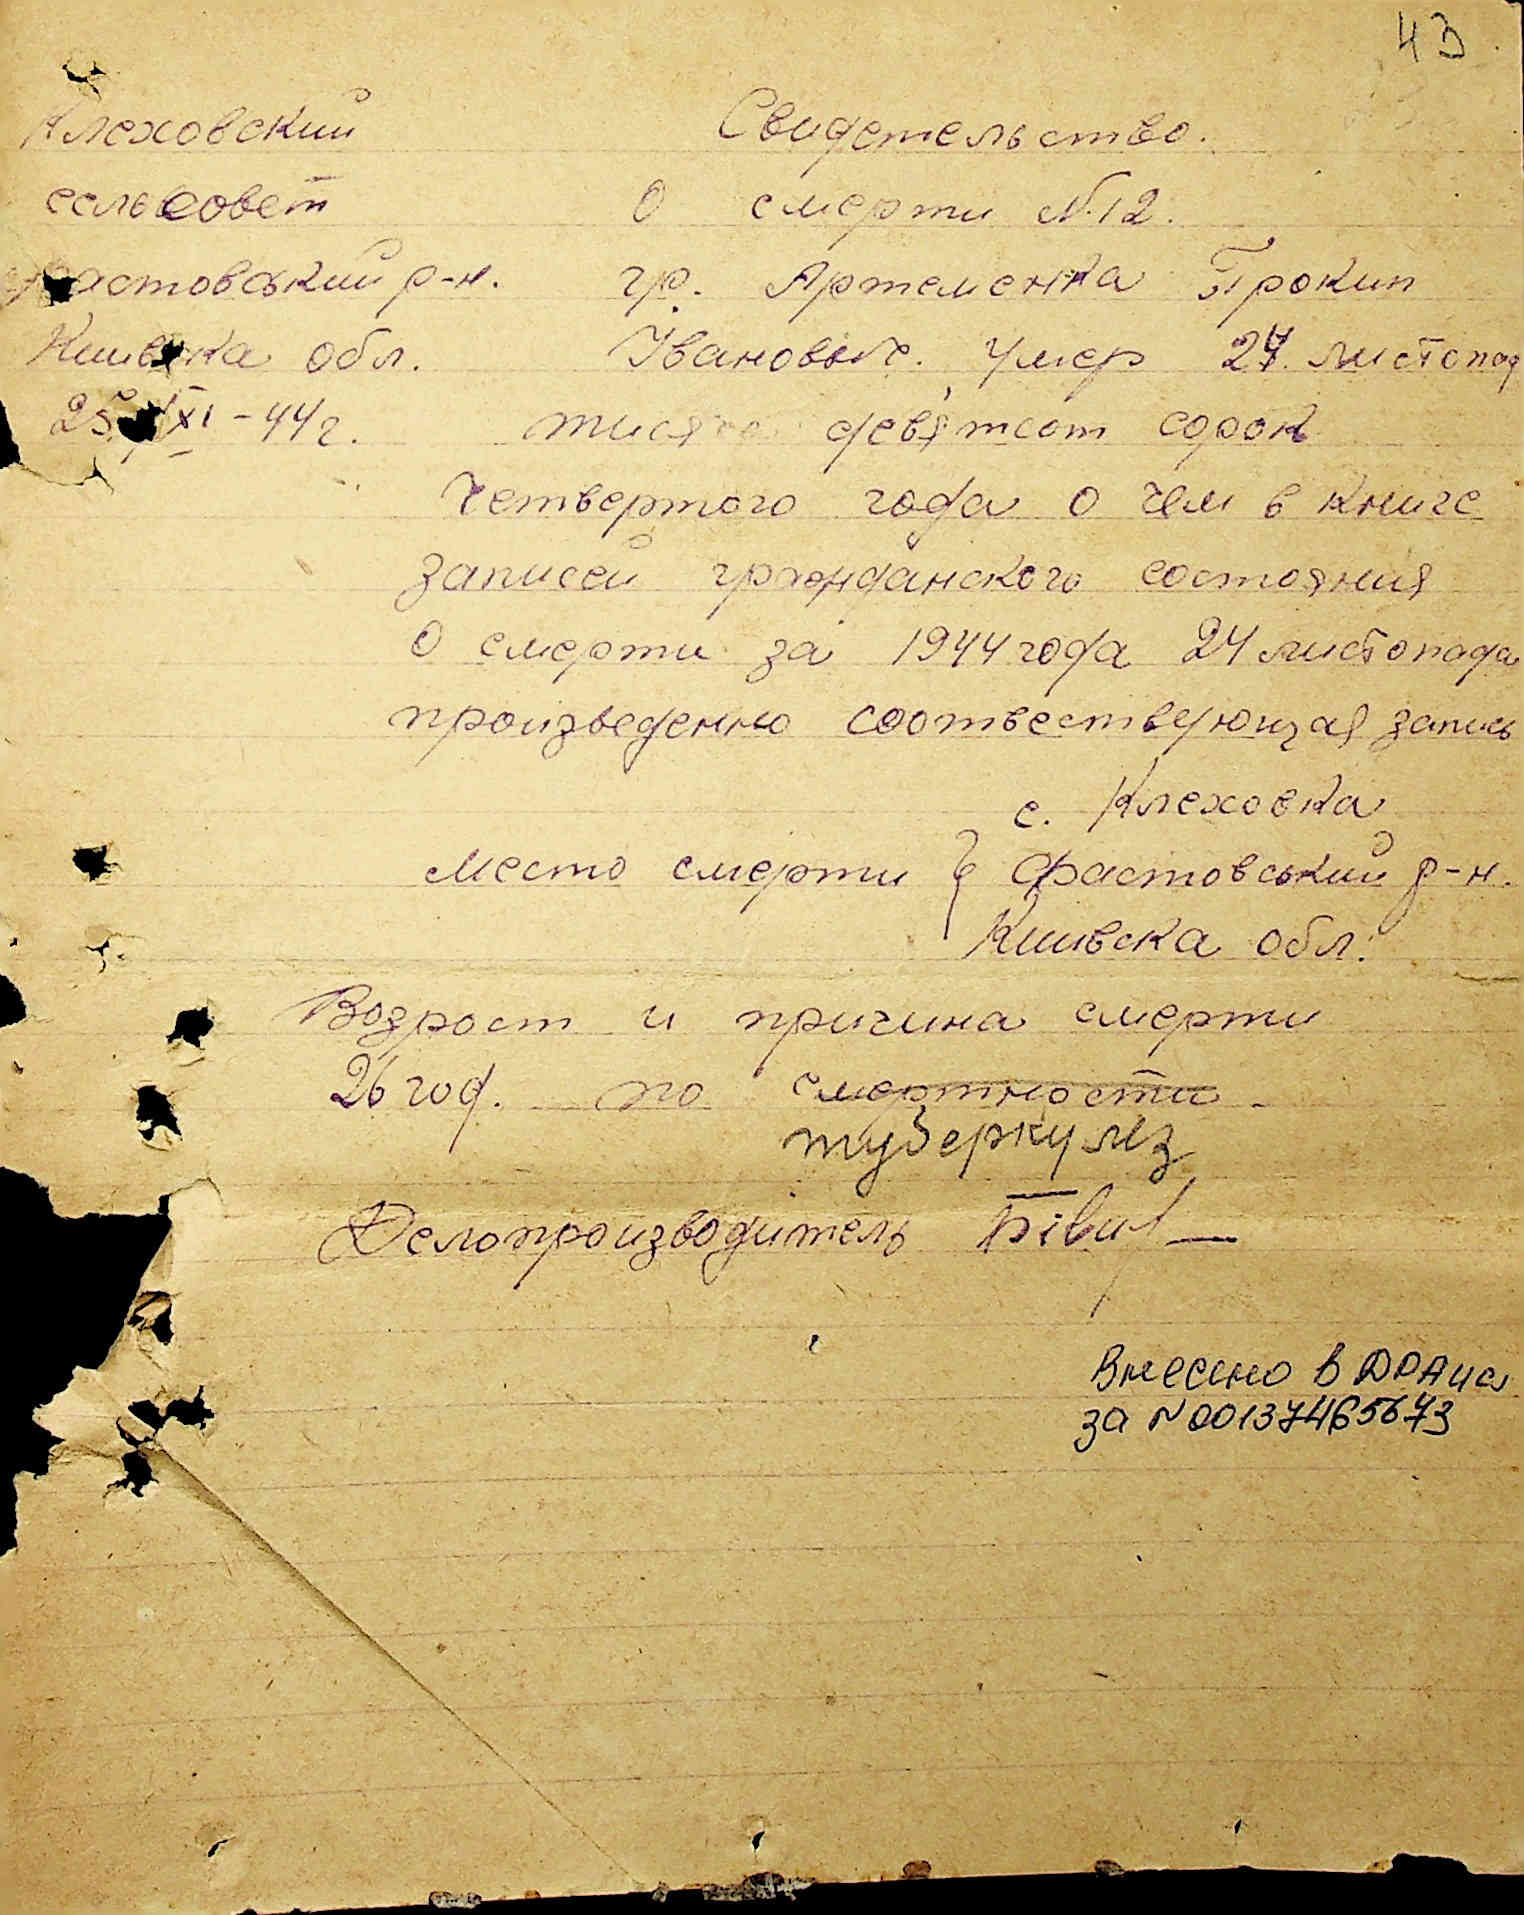 43
Клеховский
сельсовет
Фастовський р-н.
Київска обл.
25/XI-44 г.
Свидетельство.
О смерти №12.
гр. Артеменка Прокип
Ивановыч. Умер 24. листопад
тисяча девятсот сорок
Четвертого года о чем в книге
записей гражданского состояния
О смерти за 1944 года 24 листопада
произведенно соотвествующая запись
с. Клеховка
Место смерти } Фастовський р-н.
Київска обл.
Возраст и причина смерти
26 год. по смертности
туберкулез
Делопроизводитель
Внесено в ДРАЦС
за №00137465673